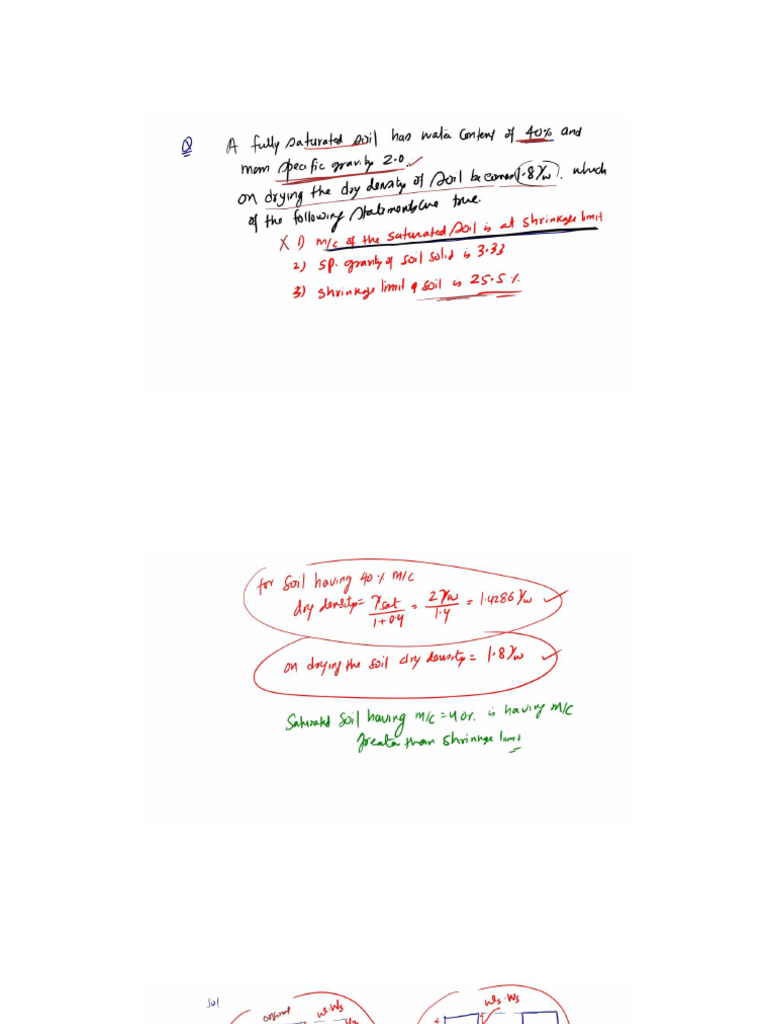 Q A fully saturated soil has wata content of 40% and
mean specific gravity 2.0
on drying the dry density of soil becomes 1.8γw. which
of the following statements are true.
X 1) m/c of the saturated soil is at shrinkage limit
2) sp. gravity of soil solid is 3.33
3) shrinkage limit of soil is 25.5%
for soil having 40% m/c
dry density = γsat / 1+0.4 = 2γw / 1.4 = 1.4286γw ✓
on drying the soil dry density = 1.8γw ✓
Saturated soil having m/c = 40%. is having m/c
greater than shrinkage limit
Sol
original w.Ws Ws.Ws